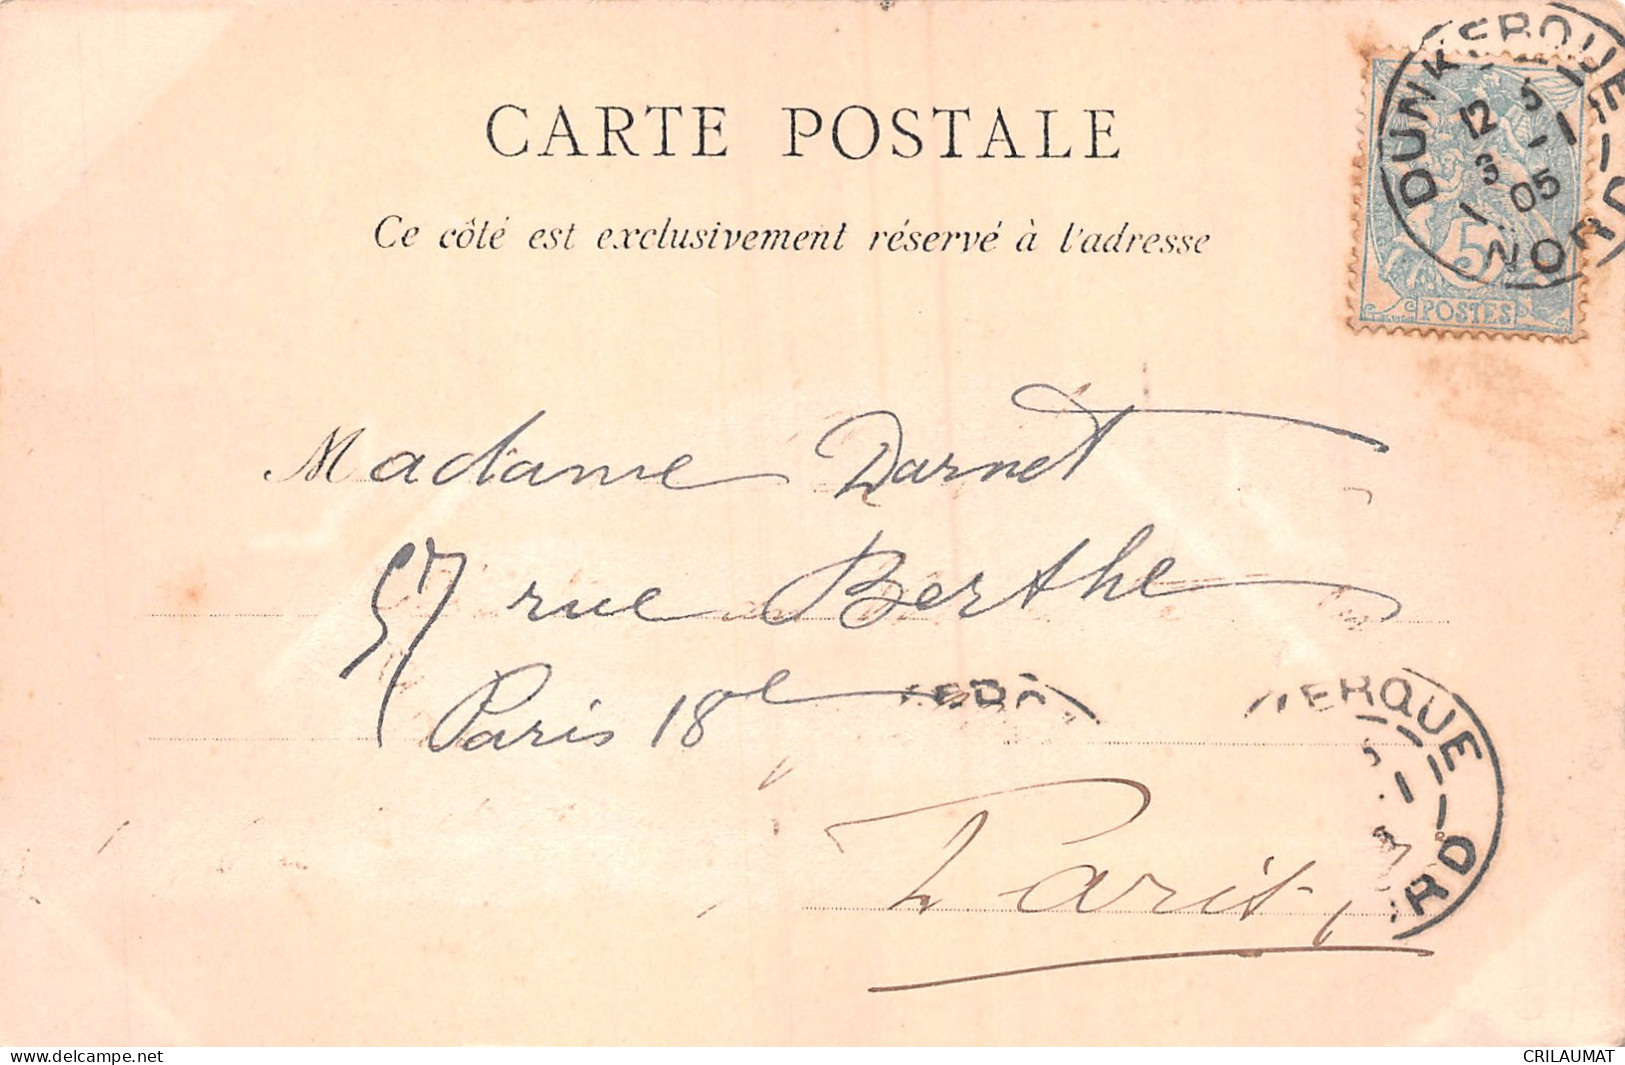 CARTE POSTALE
Ce côté est exclusivement réservé à l'adresse
DUNKERQUE
12 5
3 -1
05
NORD
5
POSTES
Madame Darnet
57 rue Berthe
Paris 18e
ERQUE
RD
Paris
www.delcampe.net
CRILAUMAT